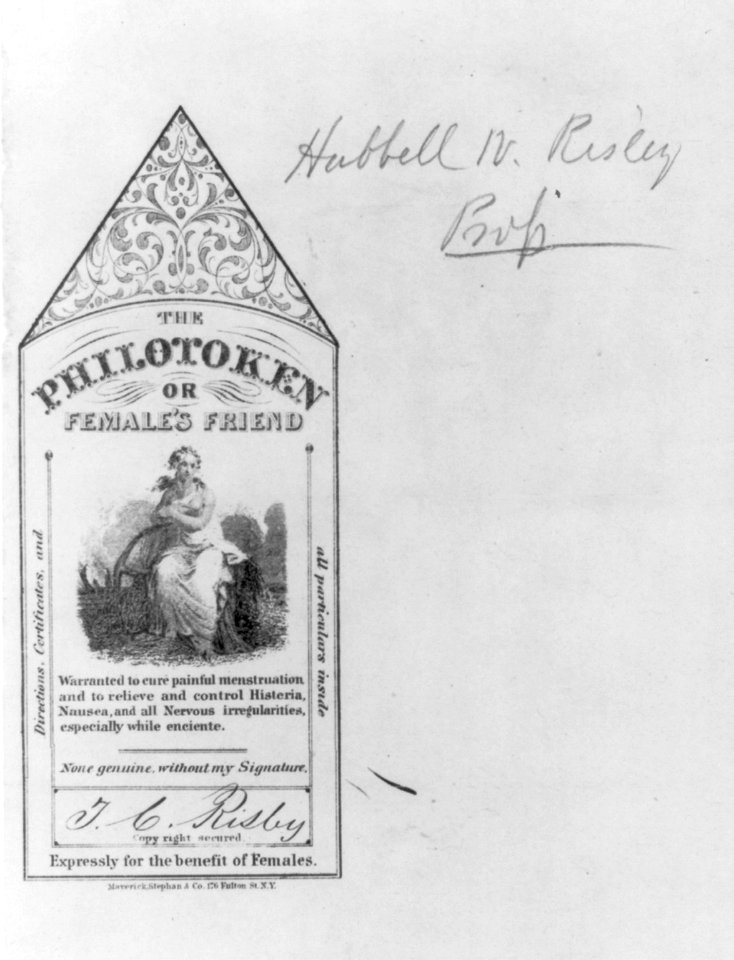 Hubbell W. Risley
Prop
THE
PHILOTOKEN
OR
FEMALE'S FRIEND
Directions, Certificates, and
all particulars inside
Warranted to cure painful menstruation
and to relieve and control Histeria,
Nausea, and all Nervous irregularities,
especially while enciente.
None genuine, without my Signature.
T. C. Risley
Copy right secured
Expressly for the benefit of Females.
Maverick, Stephan & Co. 176 Fulton St. N.Y.